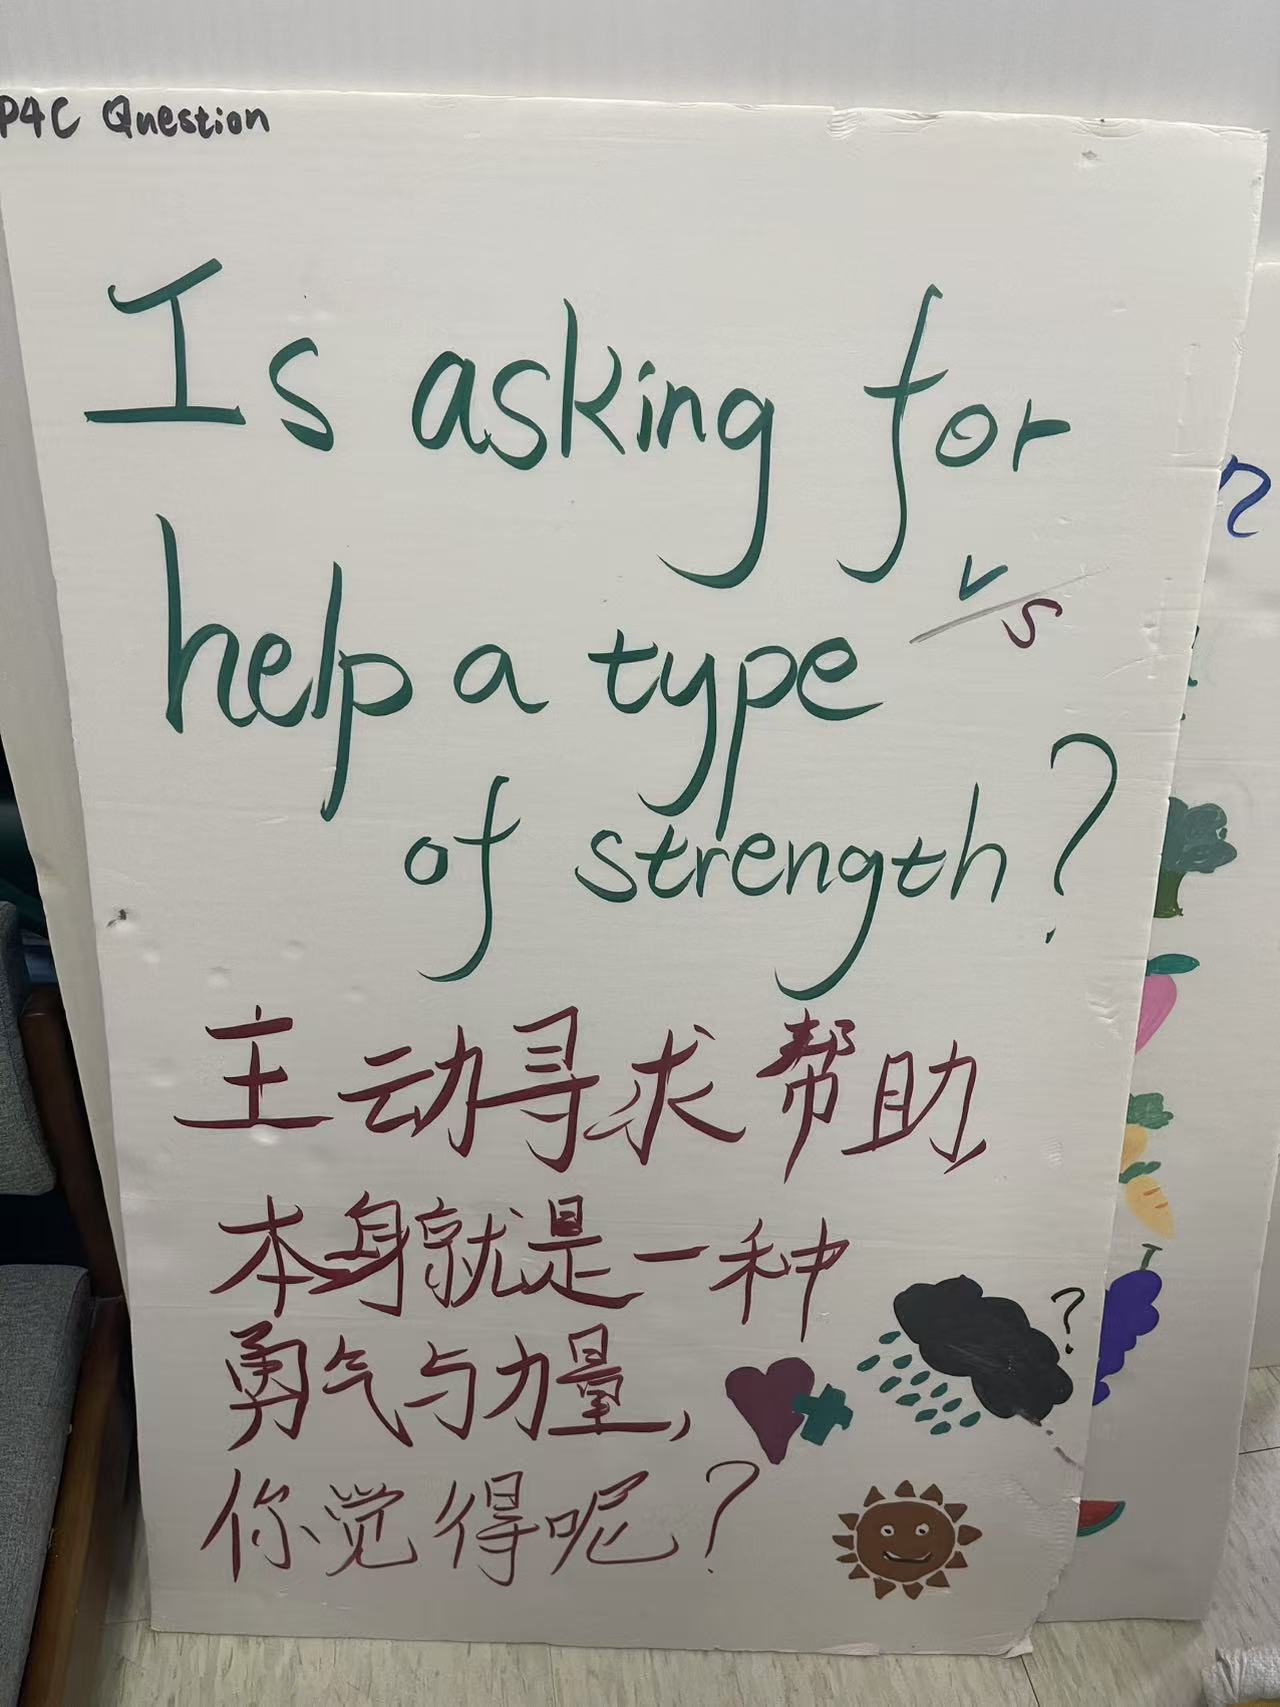 P4C Question
Is asking for
help a type
v/s
of strength?
主动寻求帮助
本身就是一种
勇气与力量,
你觉得呢?
?